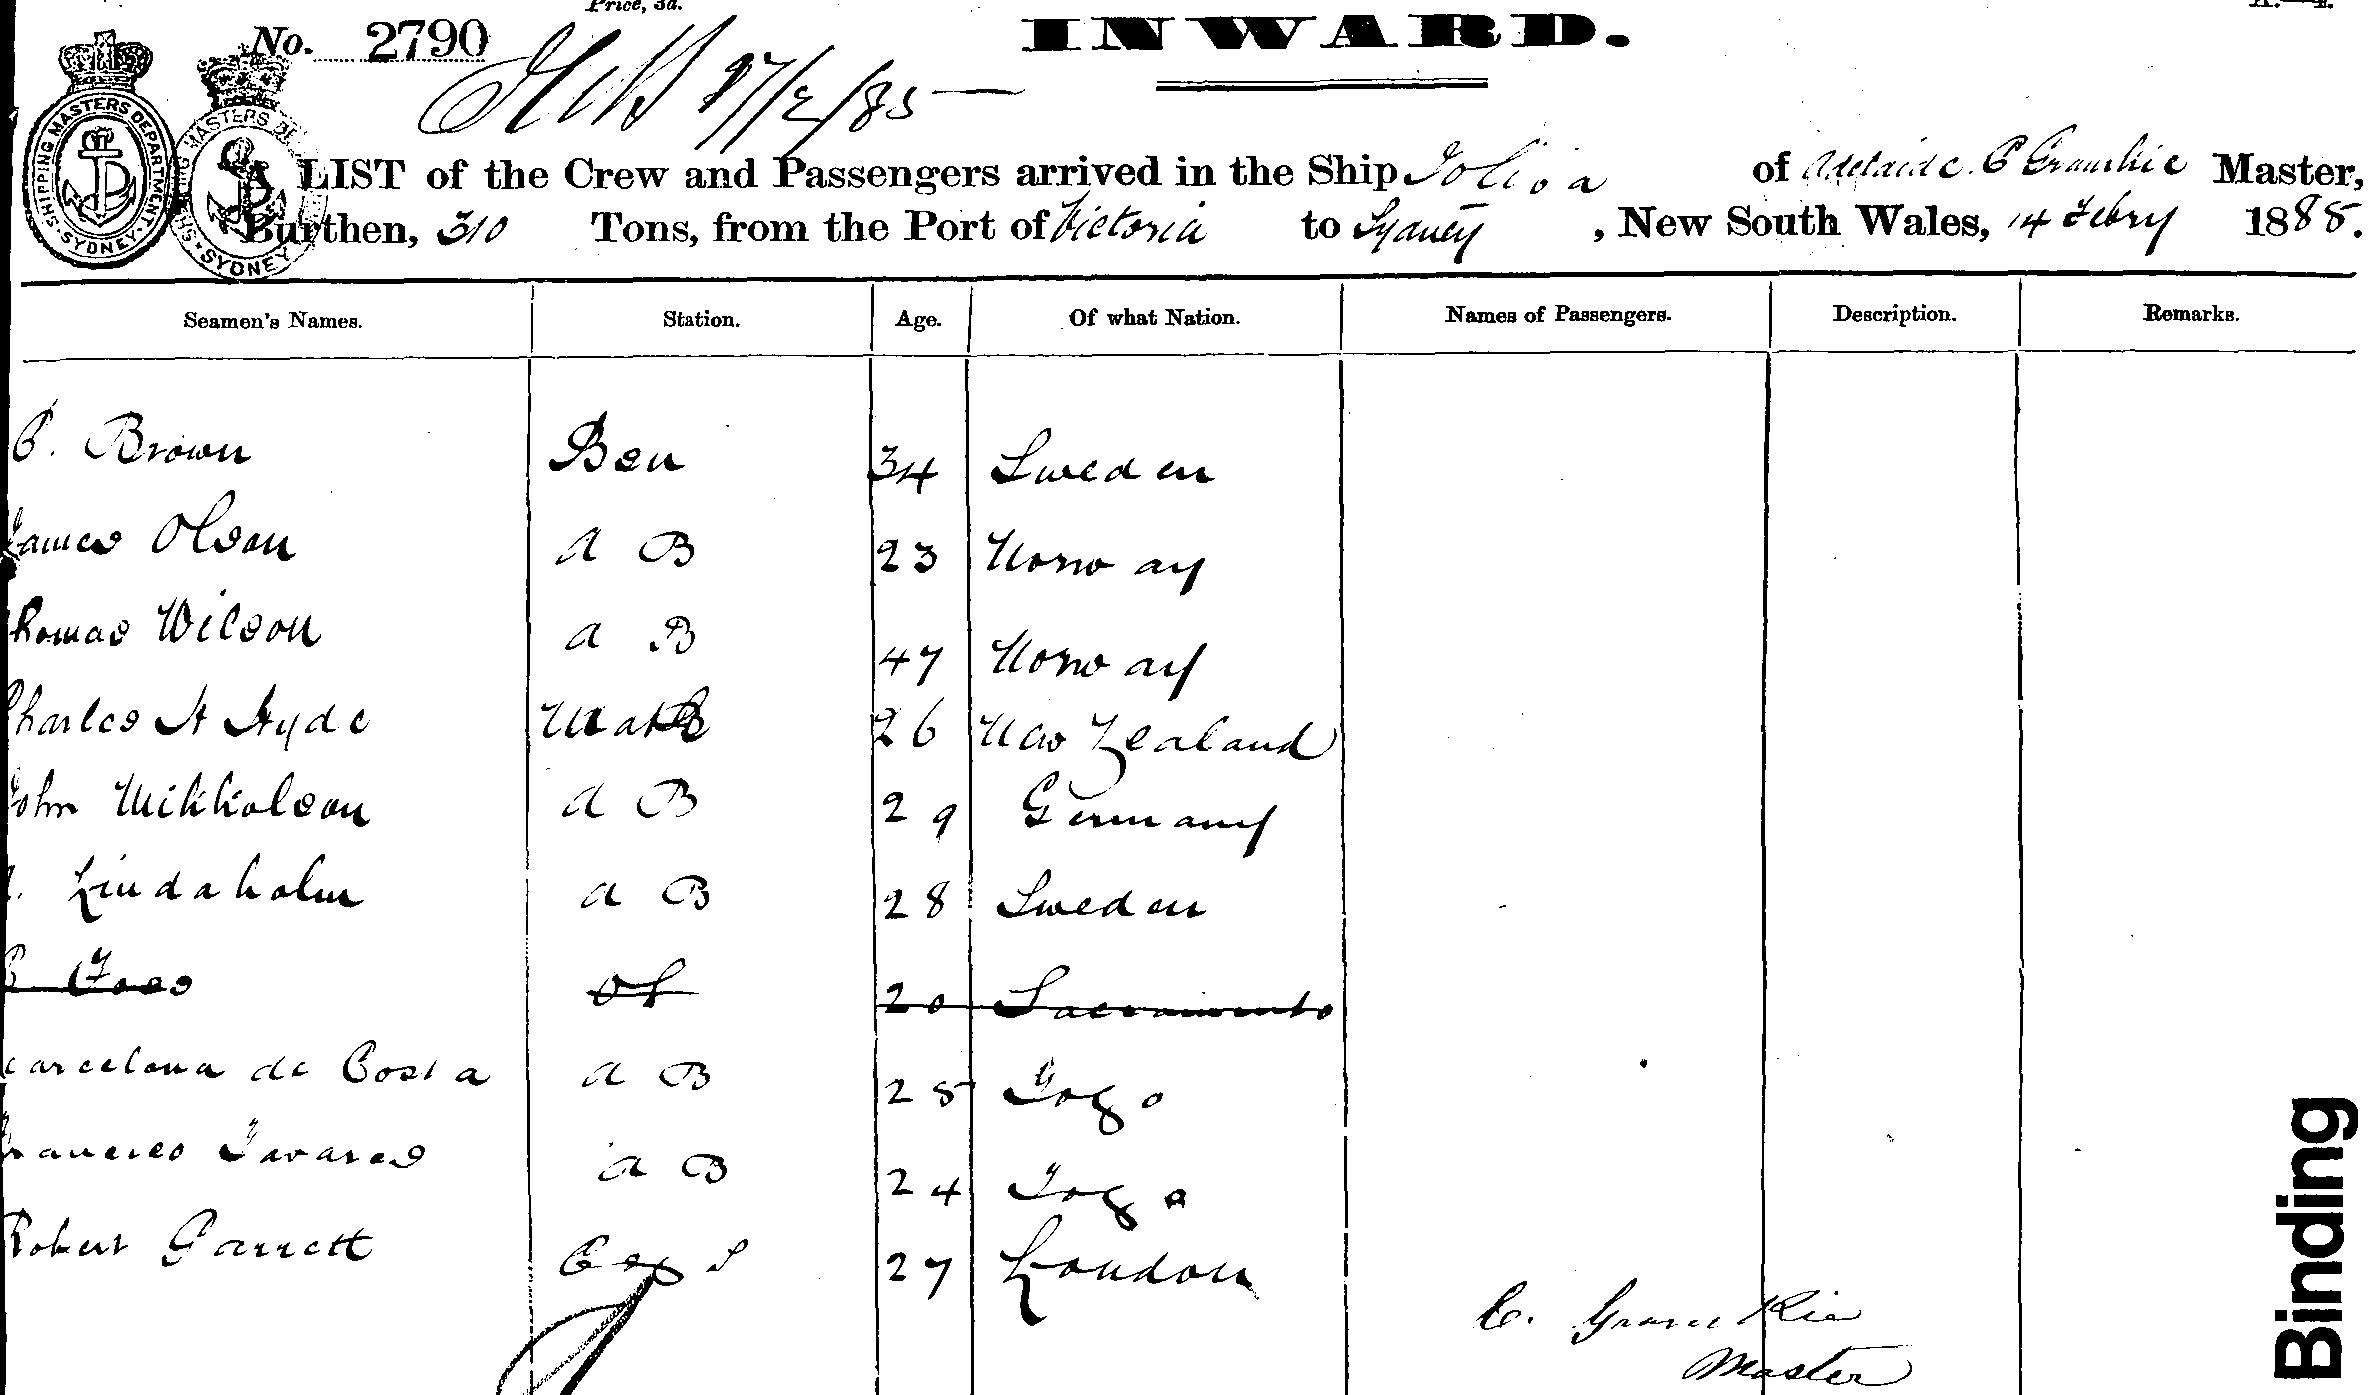 Price, 3d.
No. 2790
INWARD.
17/2/85
SHIPPING MASTERS DEPARTMENT SYDNEY
A LIST of the Crew and Passengers arrived in the Ship Joliba of Adelaide C Gramkie Master,
Burthen, 310 Tons, from the Port of Victoria to Sydney, New South Wales, 14 Febry 1885.
Seamen's Names. Station. Age. Of what Nation. Names of Passengers. Description. Remarks.
C. Brown 34 Sweden
James Olsen A B 23 Norway
Thomas Wilson A B 47 Norway
Charles H Hyde Mate 26 New Zealand
John Mikkolsen A B 29 Germany
Lindaholm A B 28 Sweden
20 Sacramento
de Costa A B 25 Togo
Tavares A B 24 Togo
Robert Garrett 27 London
C. Gramkie
Master
Binding